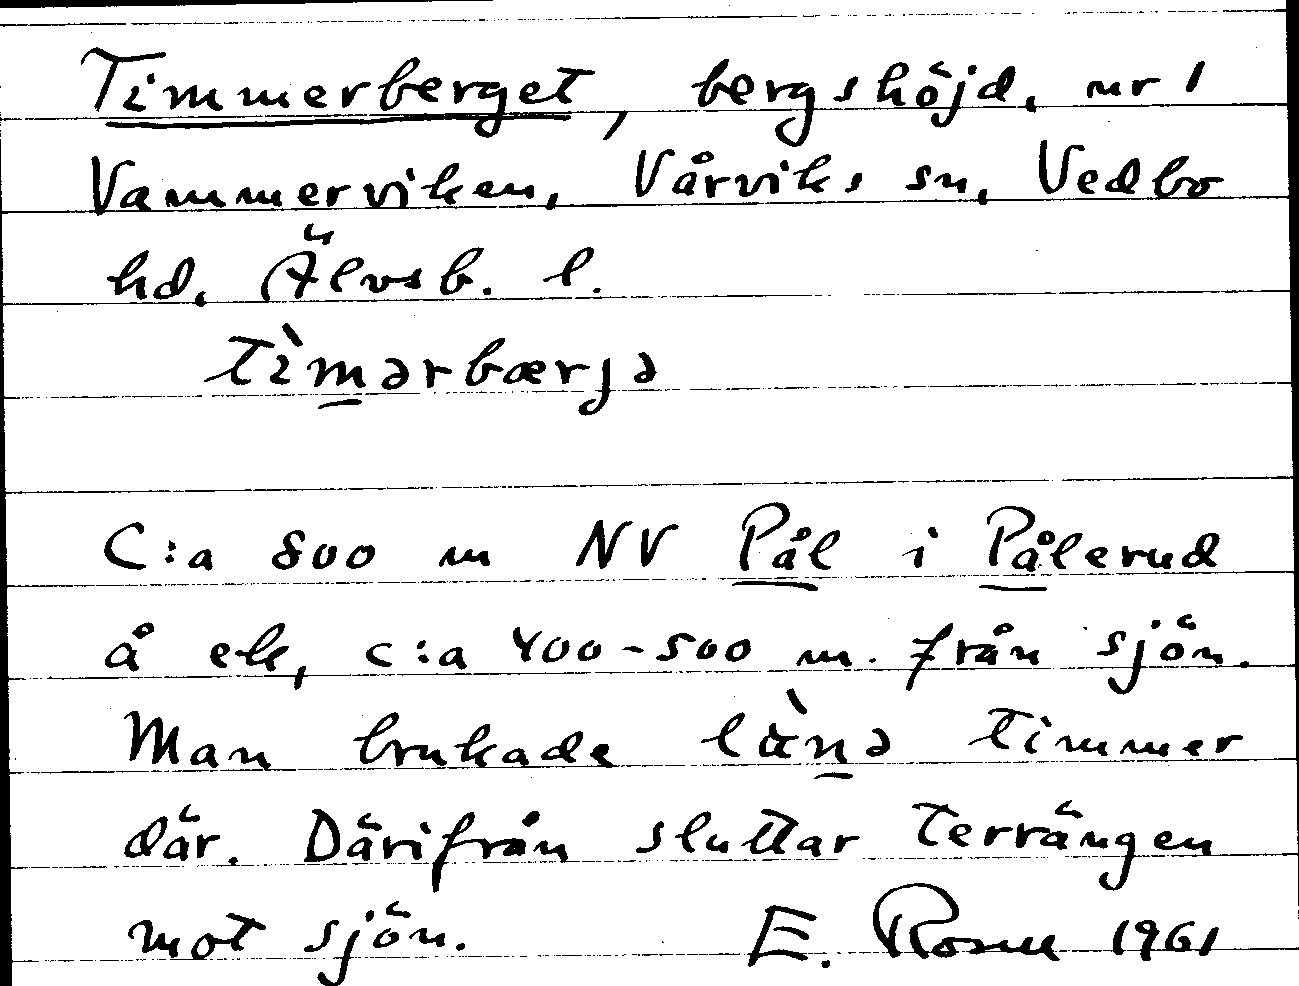 Timmerberget, bergshöjd, nr 1
Vammerviken, Vårviks sn, Vedbo
hd, Älvsb. l.
tìmərbærjə
C:a 800 m NV Pål i Pålerud
å ek, c:a 400-500 m. från sjön.
Man brukade lànə timmer
där. Därifrån sluttar terrängen
mot sjön. E. Rosell 1961